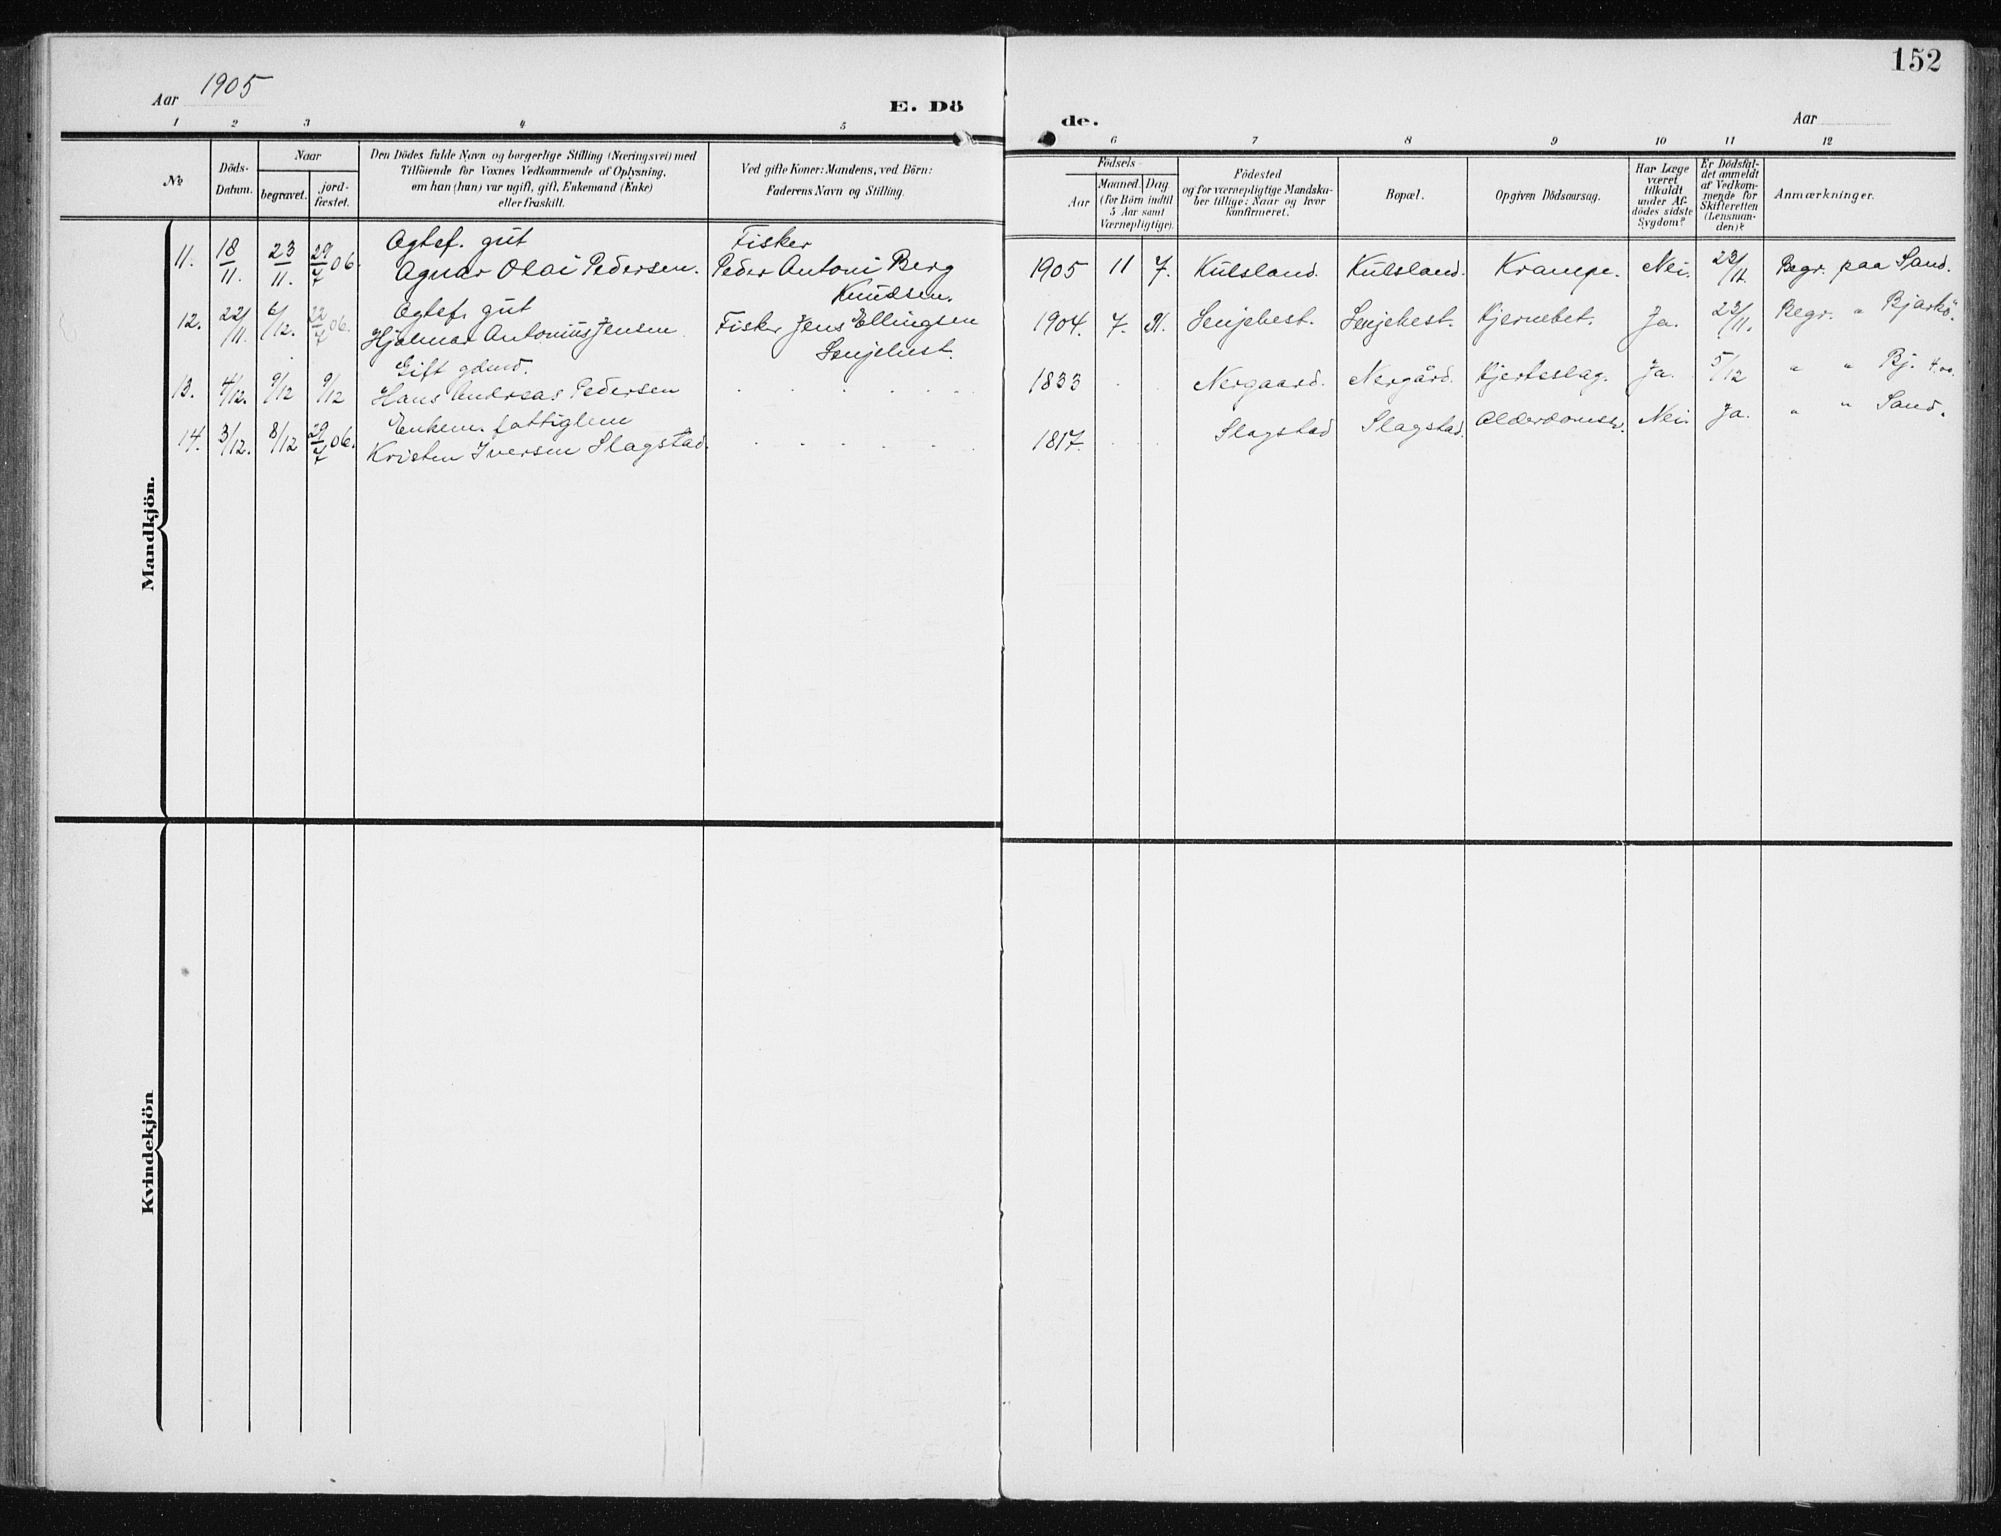 152
Aar 1905
E. Dö
de.
Aar
1 2 3 4 5
6 7 8 9 10 11 12
No
Döds-
Datum.
Naar
begravet.
jord-
fæstet.
Den Dödes fulde Navn og borgerlige Stilling (Næringsvei) med
Tilföiende for Voxnes Vedkommende af Oplysning,
om han (hun) var ugift, gift, Enkemand (Enke)
eller fraskilt.
Ved gifte Koner: Mandens, ved Börn:
Faderens Navn og Stilling.
Födsels
Aar
Maaned. Dag
(for Börn indtil
5 Aar samt
Værnepligtige).
Födested
og for værnepligtige Mandska-
ber tillige: Naar og hvor
konfirmeret.
Bopæl.
Opgiven Dödsaarsag.
Har Læge
været
tilkaldt
under Af-
dödes sidste
Sygdom?
Er Dödsfal-
det anmeldt
af Vedkom-
mende for
Skifteretten
(Lensman-
den)?
Anmærkninger.
Mandkjön.
11. 18/11. 23/11. 29/7 06. Ægtef. gut
Agnar Olai Pedersen. Fisker
Peder Antoni Berg
Knudsen. 1905 11 7. Kulsland. Kulsland. Krampe. Nei. 23/11. Begr. paa Sand.
12. 22/11. 6/12. 22/7 06. Ægtef. gut
Hjalmar Antonius Jensen. Fisker Jens Ellingsen
Senjehest. 1904. 7. 21. Senjehest. Senjehest. Hjernebet. Ja. 23/11. Begr. " Bjarkö.
13. 4/12. 9/12 9/12 Gift gdmd.
Hans Andreas Pedersen 1833 Nergaard. Nergård. Hjerteslag. Ja. 5/12 " " Bj.
14. 3/12. 8/12 29/7 06. Enkem. fattiglem
Kristen Iversen Slagstad. 1817. Slagstad Slagstad. Alderdomssv. Nei. Ja. " " Sand.
Kvindekjön